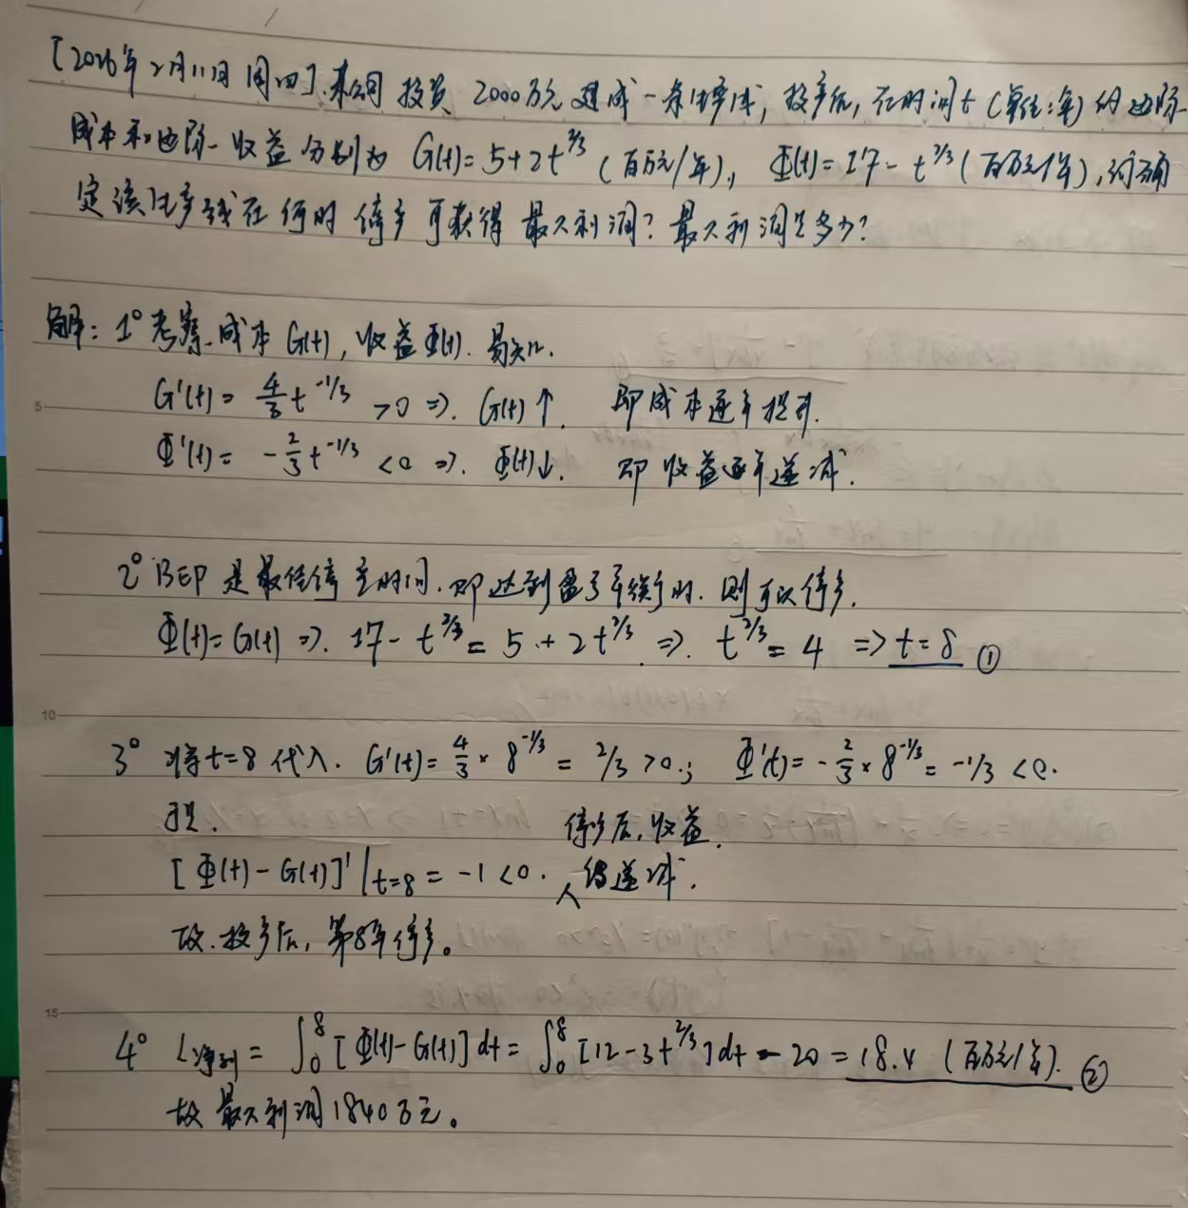 [2026年2月11日 周四].某公司投资 2000万元建成一条生产线,投产后,在时间t(单位:年)的边际
成本和边际收益分别为 G(t)=5+2t^{2/3}(百万元/年), Φ(t)=17-t^{2/3}(百万元/年),试确
定该生产线在何时停产可获得最大利润?最大利润是多少?
解: 1° 考察成本G(t),收益Φ(t). 易知.
5
G'(t)= 4/3 t^{-1/3} >0 ⇒. G(t)↑. 即成本逐年提升.
Φ'(t)= -2/3 t^{-1/3} <0 ⇒. Φ(t)↓. 即收益逐年递减.
2° BEP 是最佳停产时间.即达到盈亏平衡时.则可以停产.
Φ(t)=G(t) ⇒. 17-t^{2/3} = 5+2t^{2/3} ⇒. t^{2/3}=4 ⇒ t=8 ①
10
3° 将t=8代入. G'(t)= 4/3 × 8^{-1/3} = 2/3 >0.; Φ'(t)= -2/3 × 8^{-1/3} = -1/3 <0.
停产后,收益
[Φ(t)-G(t)]'|_{t=8} = -1<0. 递减.
故.投产后,第8年停产。
15
4° L净利 = ∫_0^8 [Φ(t)-G(t)]dt = ∫_0^8 [12-3t^{2/3}]dt - 20 = 18.4 (百万元/年). ②
故最大利润1840万元。